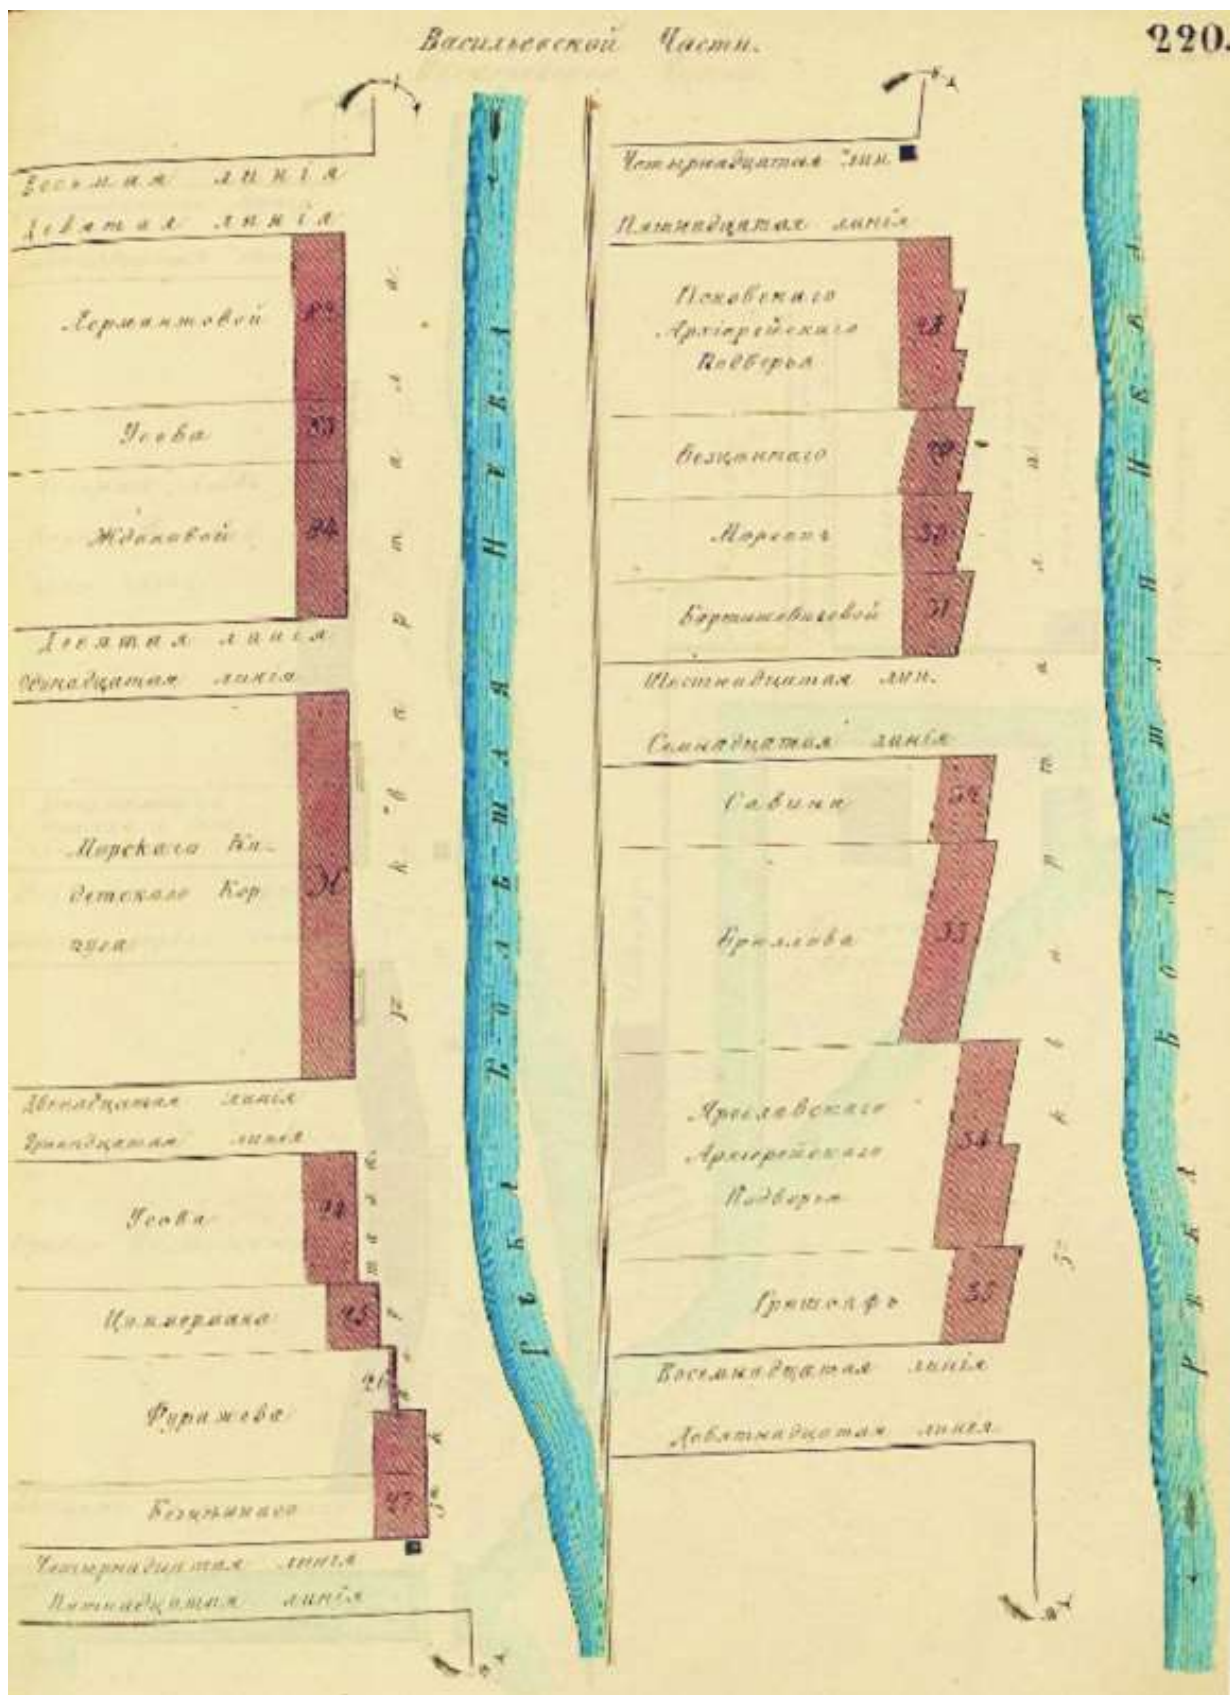 Васильевской Части.
220.
Восьмая линія
Девятая линія
Лермантовой
Усова
83
Ждановой
84
Десятая линія
Одинадцатая линія
Морскаго Ка-
детскаго Кор
пуса
Двенадцатая линія
Тринадцатая линія
Усова
24
Циммермана
25
Фуражева
26
Безценнаго
27
Четырнадцатая линія
Пятнадцатая линія
5го квартала
5го квартала
Рѣка Большая Нева
Четырнадцатая лин
Пятнадцатая линія
Псковскаго
Архіерейскаго
Подворья
28
Безценнаго
29
30
31
Шестнадцатая лин.
Семнадцатая линія
Савина
Брюллова
33
Ярославскаго
Архіерейскаго
Подворья
34
35
Восемнадцатая линія
Девятнадцатая линія
5го квартала
Рѣка Большая Нева